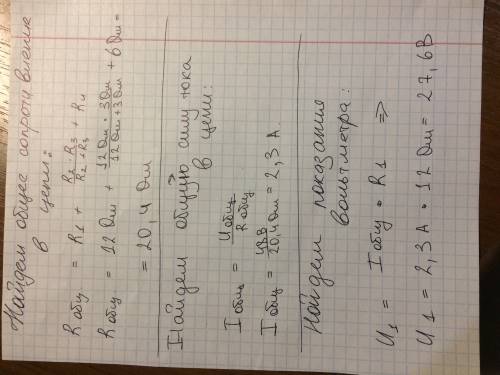 Найдем общее сопротивление
в цепи:
Rобщ = R1 + R2 · R3 / R2 + R3 + R4
Rобщ = 12 Ом + 12 Ом · 3 Ом / 12 Ом + 3 Ом + 6 Ом =
= 20,4 Ом
Найдем общую силу тока
в цепи:
Iобщ = Uобщ / Rобщ
Iобщ = 48 В / 20,4 Ом = 2,3 А.
Найдем показание
вольтметра:
U1 = Iобщ · R1 ⇒
U1 = 2,3 А · 12 Ом = 27,6 В